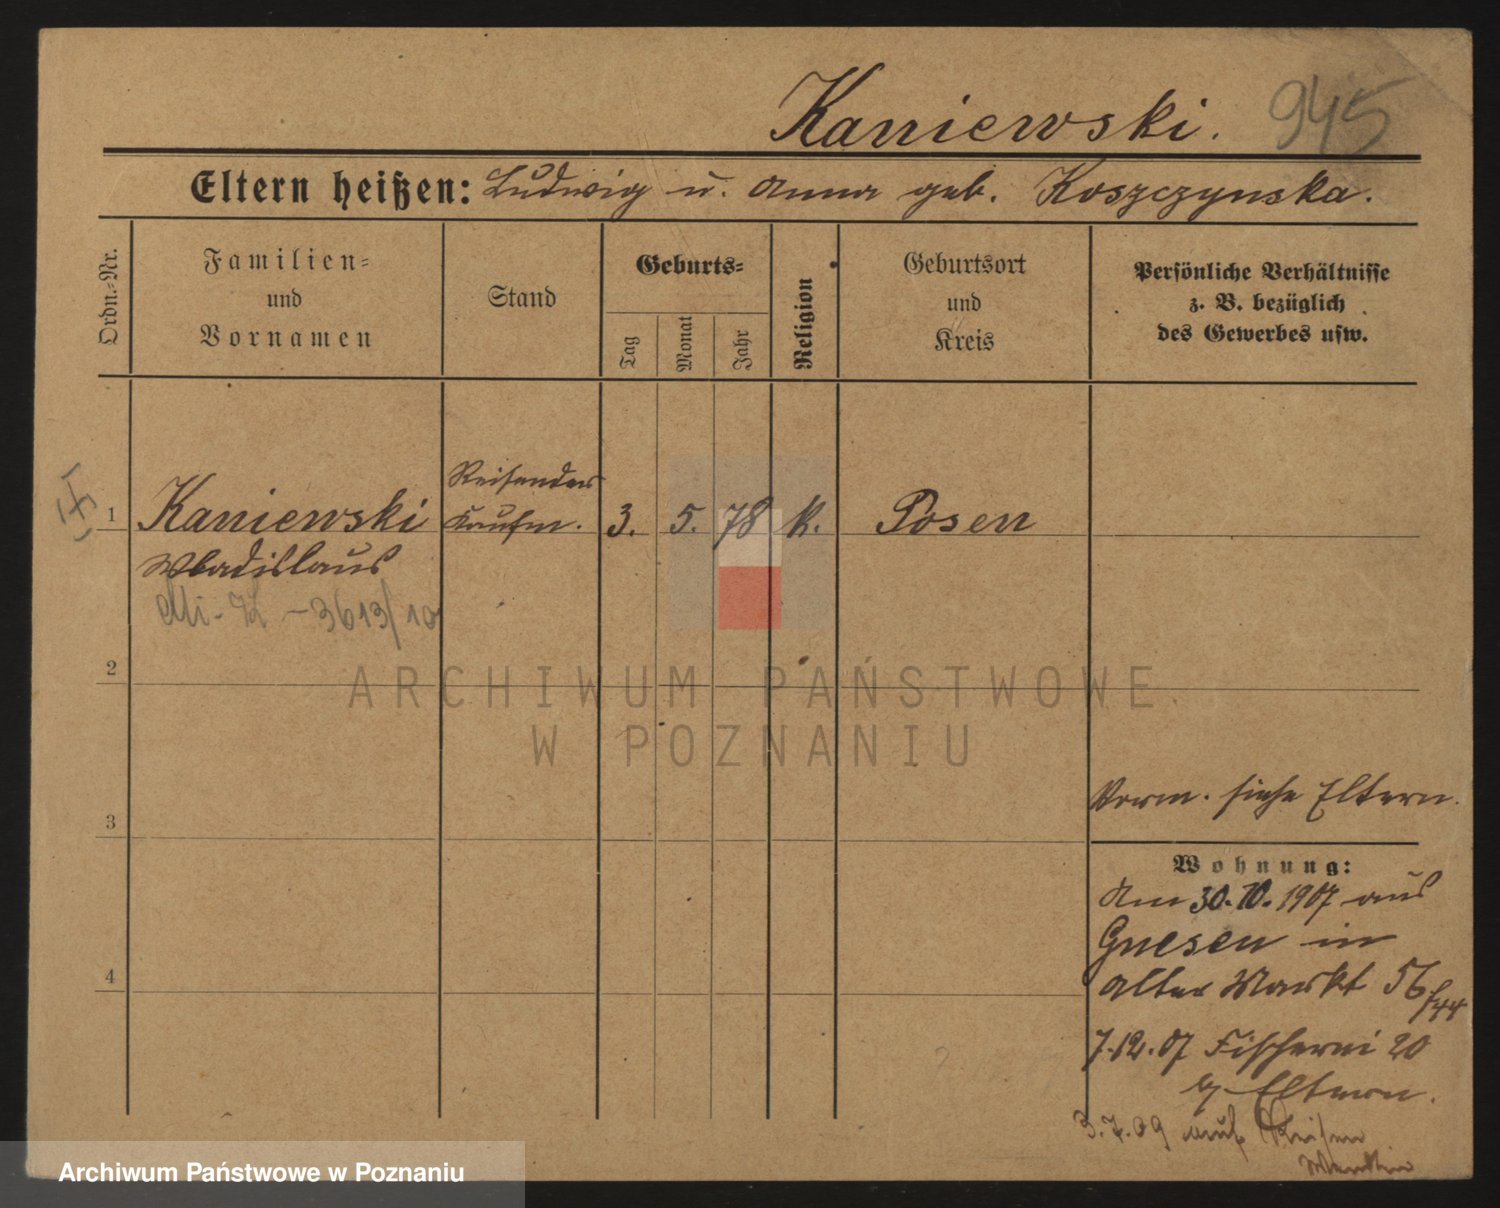 Kaniewski. 945
Eltern heißen: Ludwig u. Anna geb. Koszczynska.
Ordn.-Nr.
Familien-
und
Vornamen
Stand
Geburts-
Tag
Monat
Jahr
Religion
Geburtsort
und
Kreis
Persönliche Verhältnisse
z. B. bezüglich
des Gewerbes usw.
1
Kaniewski
Wladislaus
Mi-Z-3613/10
Reisender
Kaufm.
3. 5. 78 k. Posen
2
ARCHIWUM PAŃSTWOWE
W POZNANIU
3
Vorm. siehe Eltern.
Wohnung:
Am 30.10.1907 aus
Gnesen in
Alter Markt 56/44
4
7.12.07 Fischerei 20
b/ Eltern.
3.7.09 auf Reisen
Archiwum Państwowe w Poznaniu